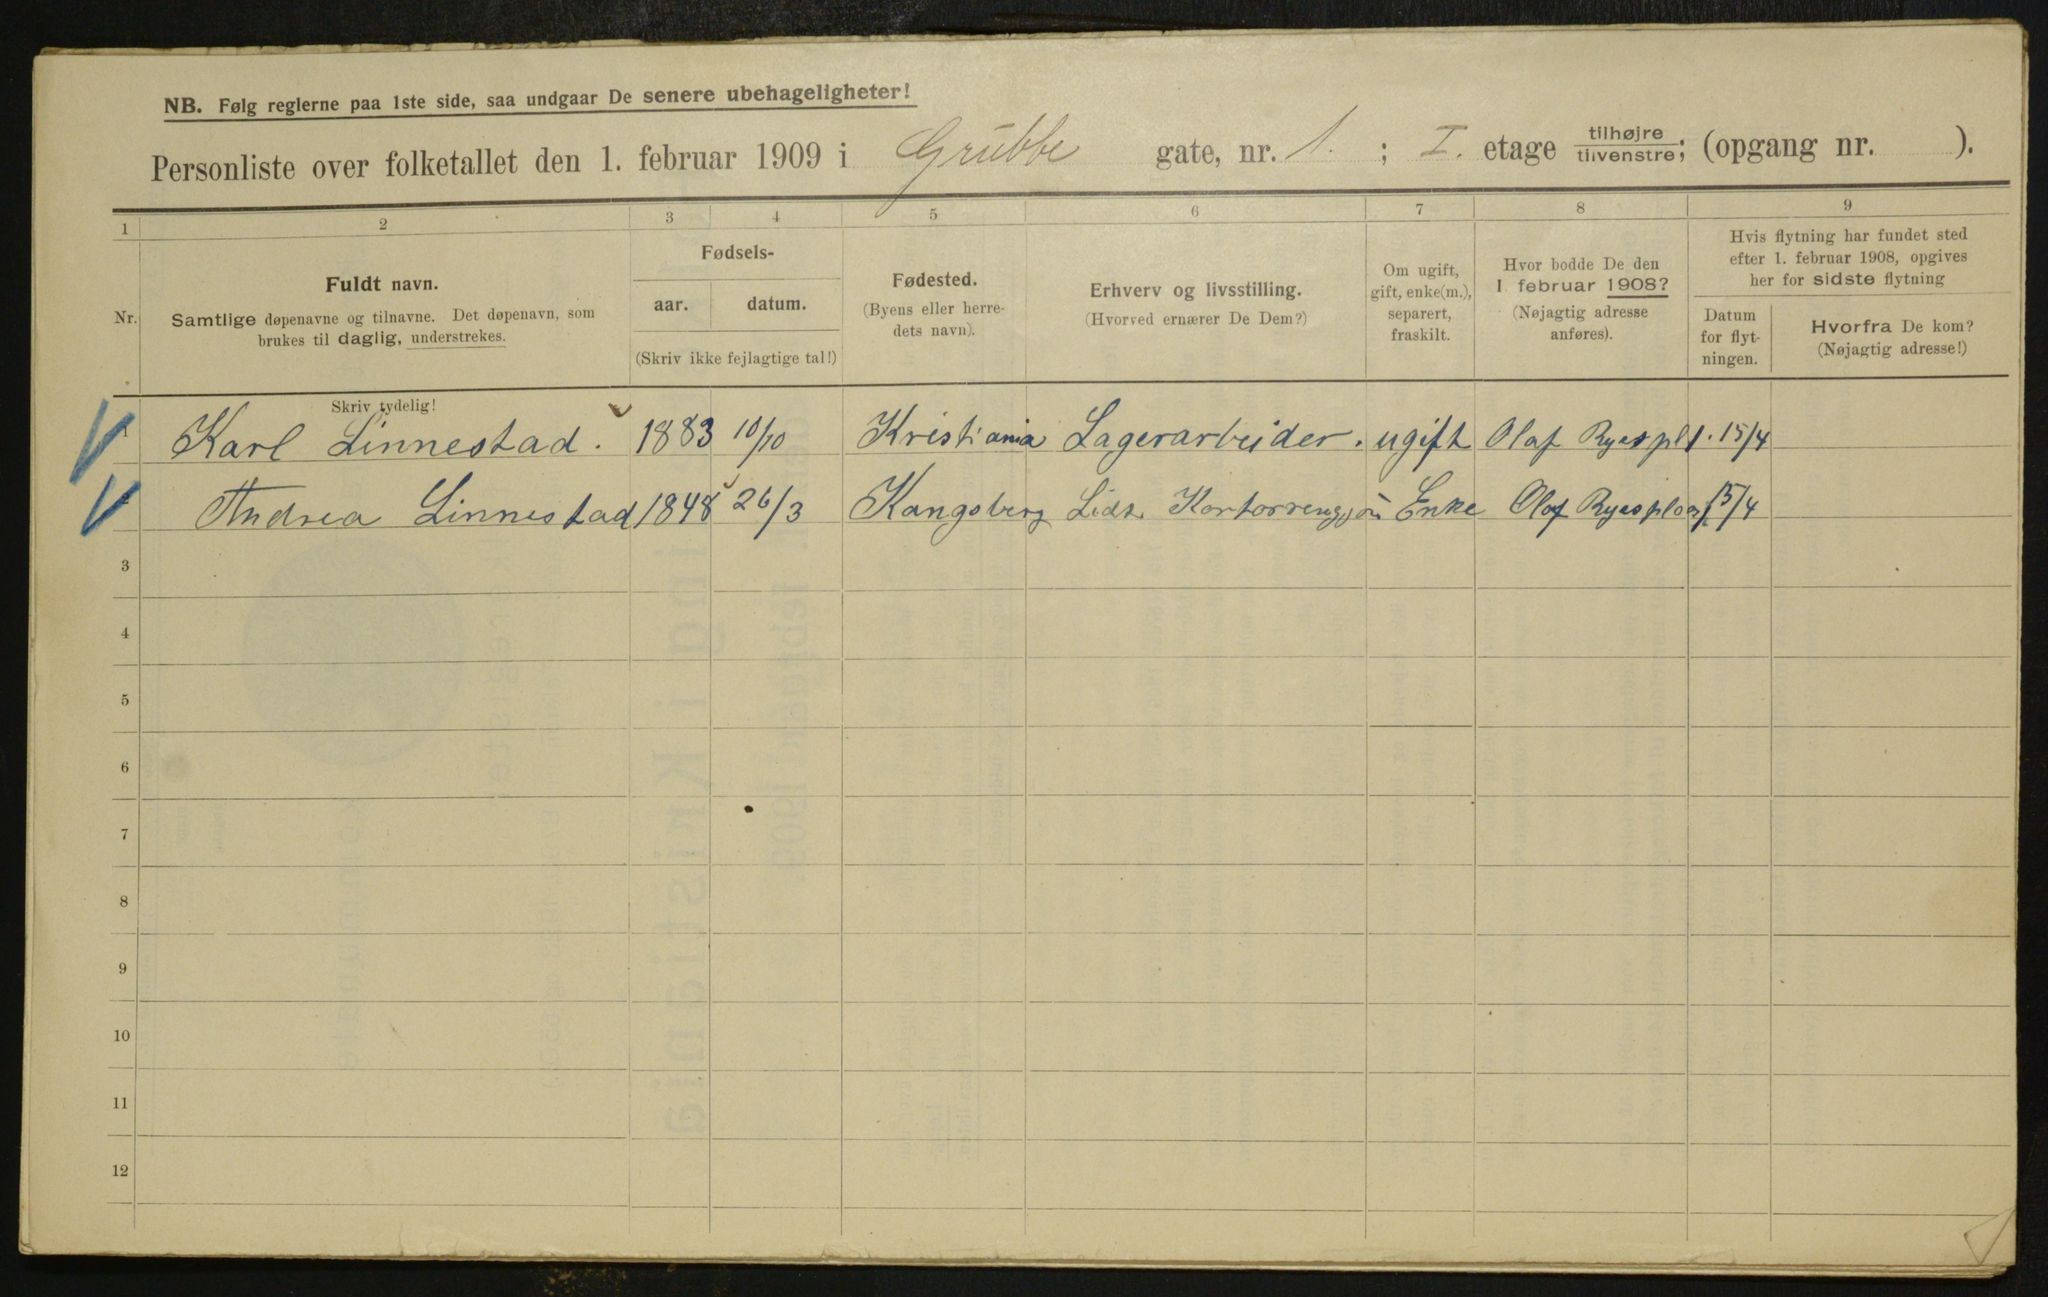 NB. Følg reglerne paa 1ste side, saa undgaar De senere ubehageligheter!
Personliste over folketallet den 1. februar 1909 i Grubbe gate, nr. 1. ; I. etage tilhøjre/tilvenstre; (opgang nr. ).
1 2 3 4 5 6 7 8 9
Nr.
Fuldt navn.
Samtlige døpenavne og tilnavne. Det døpenavn, som
brukes til daglig, understrekes.
Skriv tydelig!
Fødsels-
aar. datum.
(Skriv ikke fejlagtige tal!)
Fødested.
(Byens eller herre-
dets navn).
Erhverv og livsstilling.
(Hvorved ernærer De Dem?)
Om ugift,
gift, enke(m.),
separert,
fraskilt.
Hvor bodde De den
1. februar 1908?
(Nøjagtig adresse
anføres).
Hvis flytning har fundet sted
efter 1. februar 1908, opgives
her for sidste flytning
Datum
for flyt-
ningen.
Hvorfra De kom?
(Nøjagtig adresse!)
1 Karl Linnestad. 1883 10/10 Kristiania Lagerarbeider. ugift Olaf Ryes pl 1. 15/4
Andrea Linnestad 1848 26/3 Kongsberg Enke Olaf Ryes plas 15/4
3
4
5
6
7
8
9
10
11
12